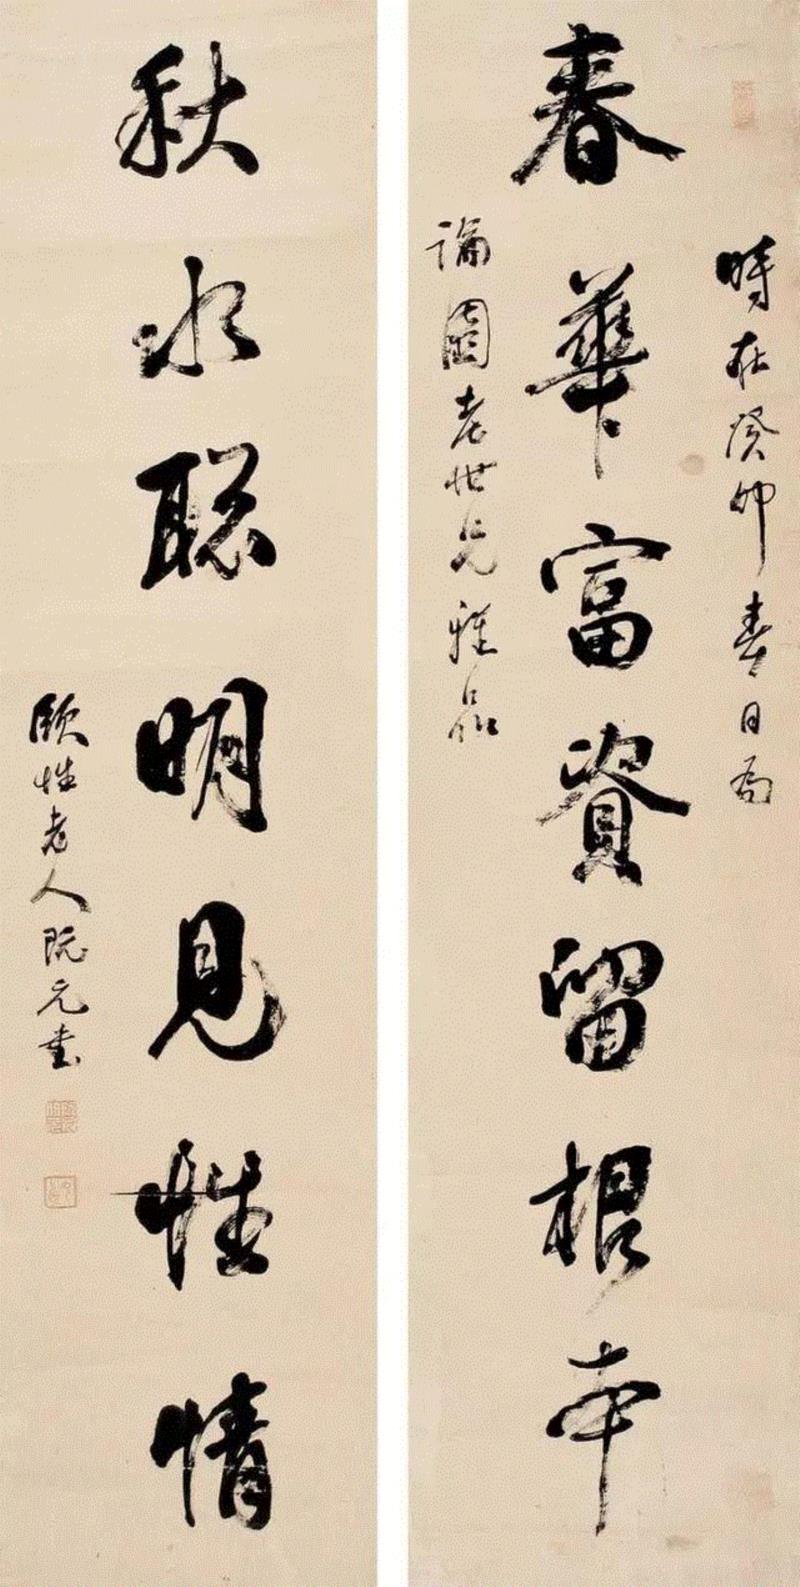 時在癸卯春日為
春華富資留根本
園老世兄雅品
秋水聰明見性情
頤性老人阮元書